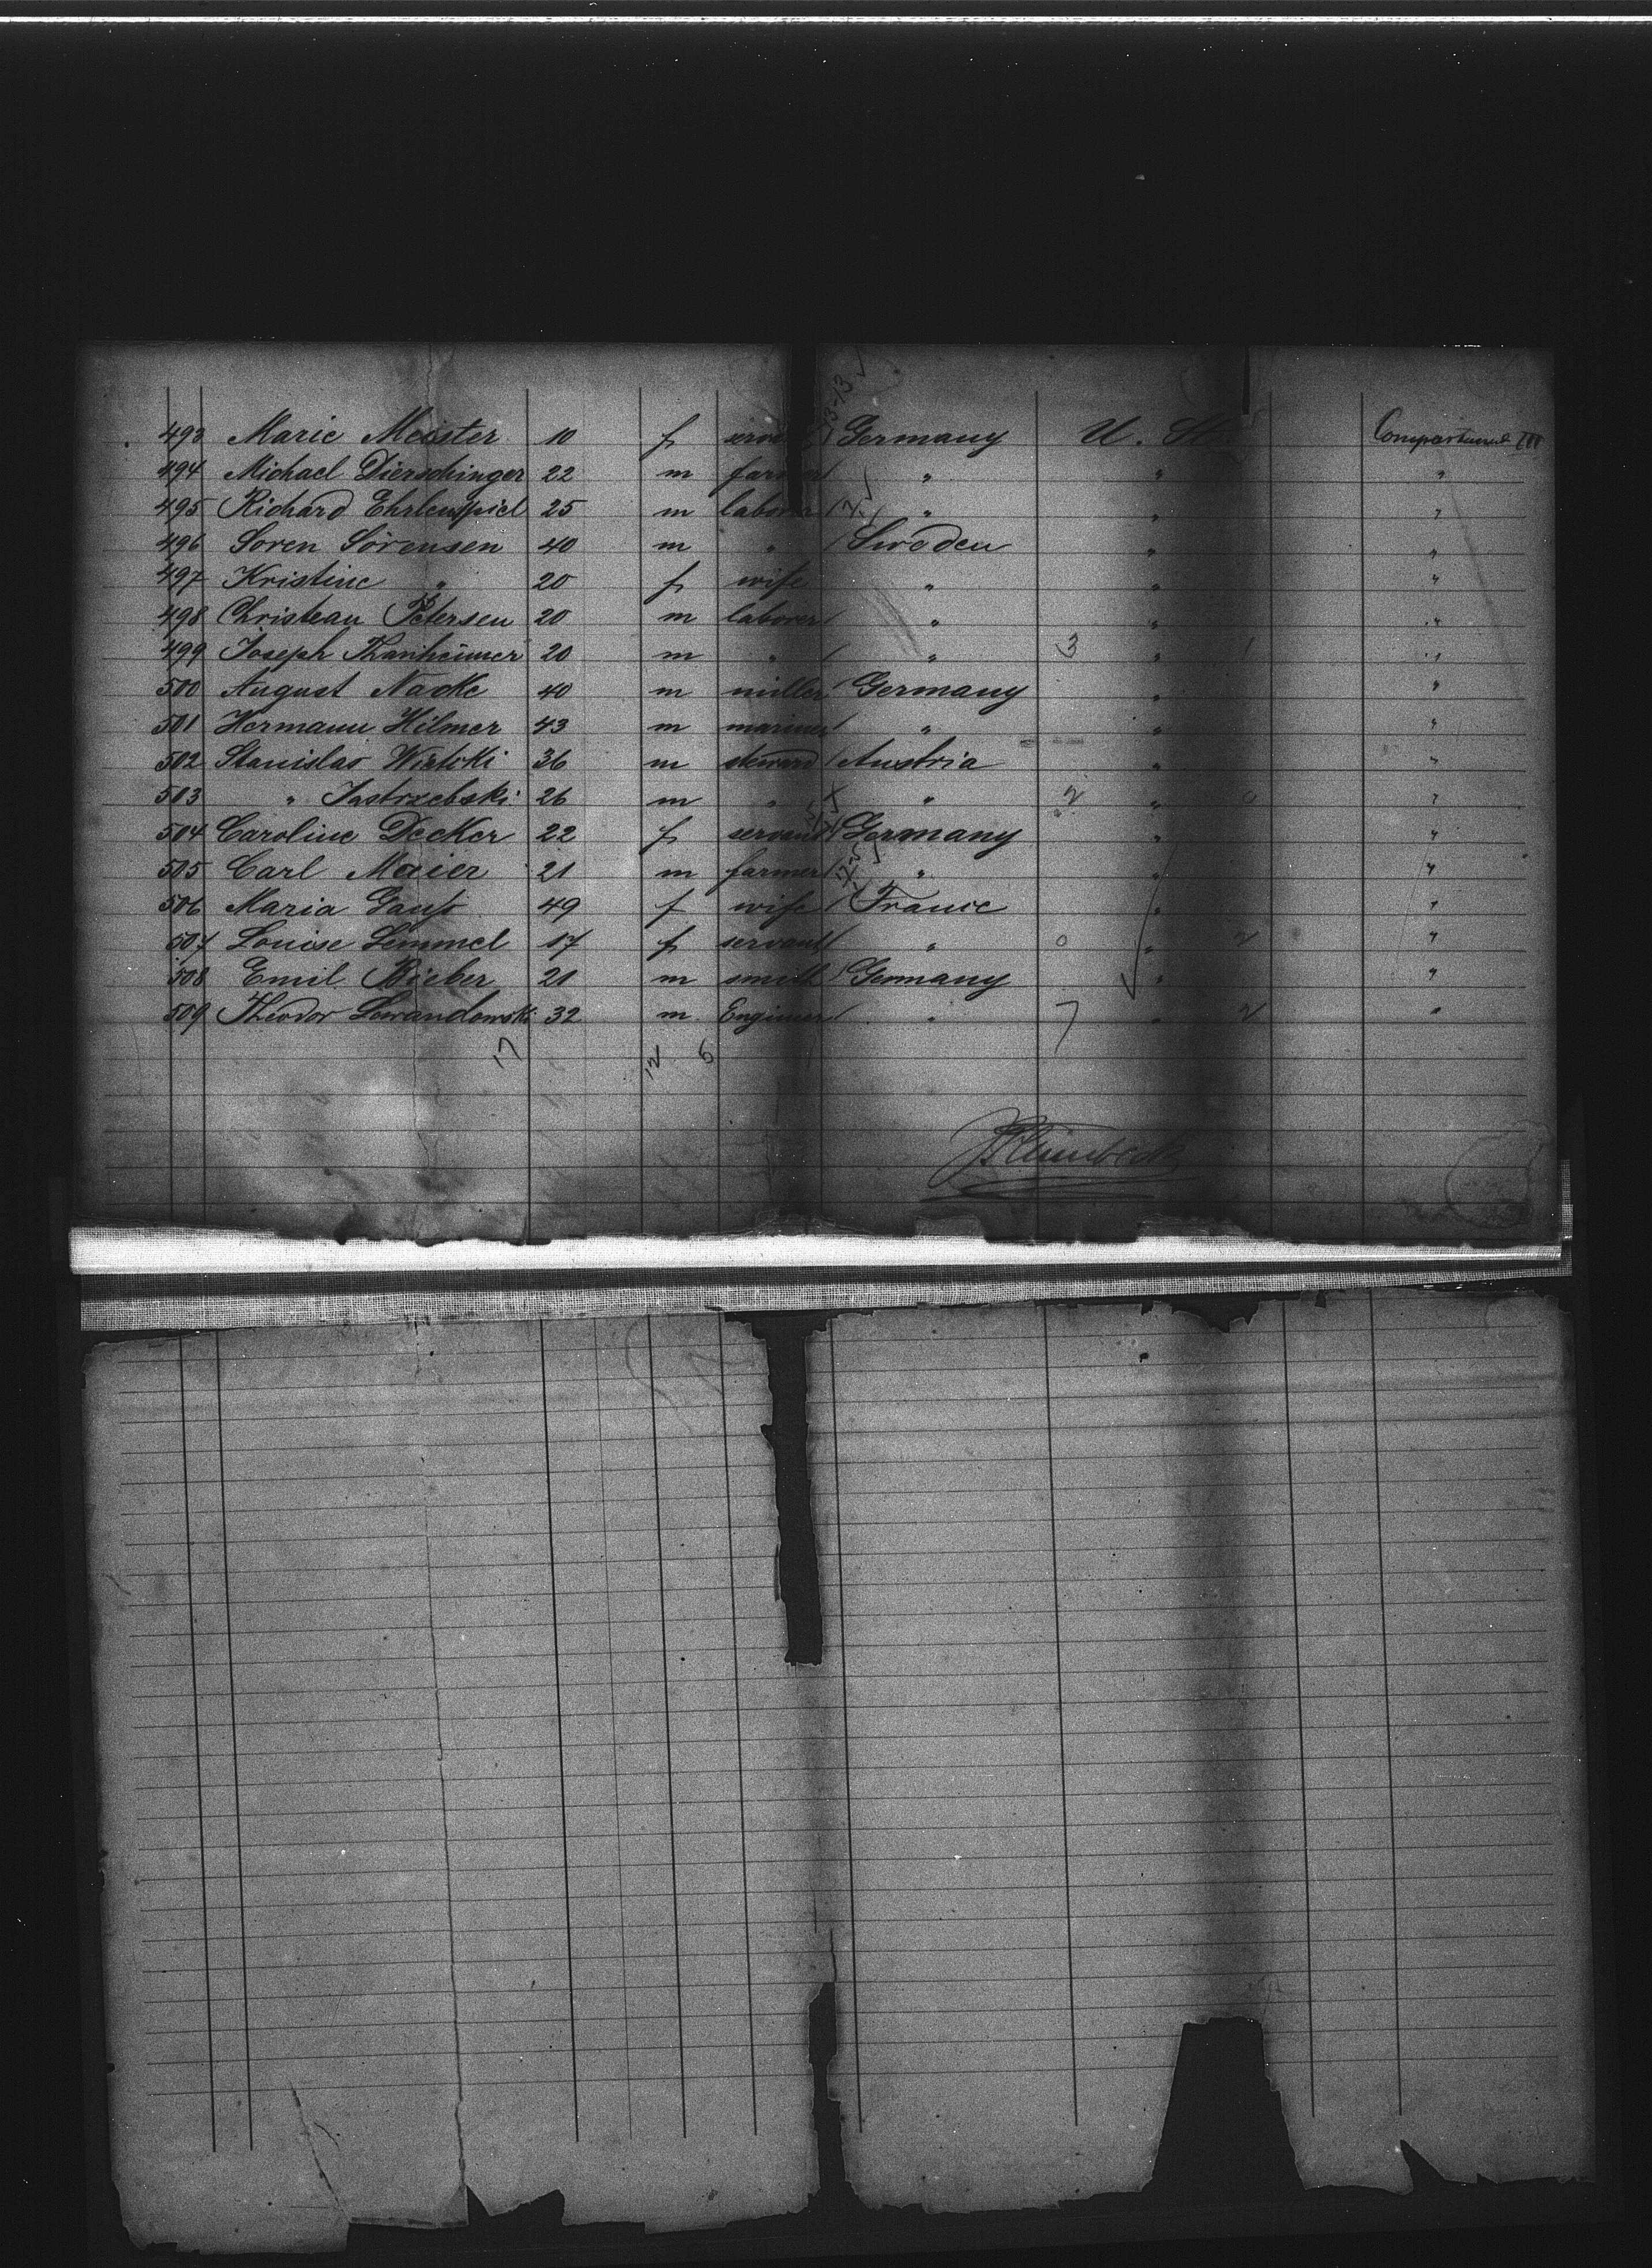 493 Marie Meister 10 f Germany U. St Compartment III
494 Michael Dierschinger 22 m farmer " " "
495 Richard Ehrlenspiel 25 m laborer " " "
496 Soren Sörensen 40 m " Sweden " "
497 Kristine " 20 f wife " " "
498 Christean Petersen 20 m laborer " " "
499 Joseph Thanheimer 20 m " " 3 " 1 "
500 August Nacke 40 m miller Germany " "
501 Hermann Hilmer 43 m mariner " " "
502 Stanislas 36 m steward Austria " "
503 " Jastrzebski 26 m " " 2 " 0 "
504 Caroline Decker 22 f servant Germany " "
505 Carl Maier 21 m farmer " " "
506 Maria Gauß 49 f wife France " "
507 Louise Lemmel 17 f servant " 0 " 2 "
508 Emil Bieber 21 m smith Germany " "
509 Theodor Lewandowski 32 m Engineer " 7 " 2 "
17 12 5